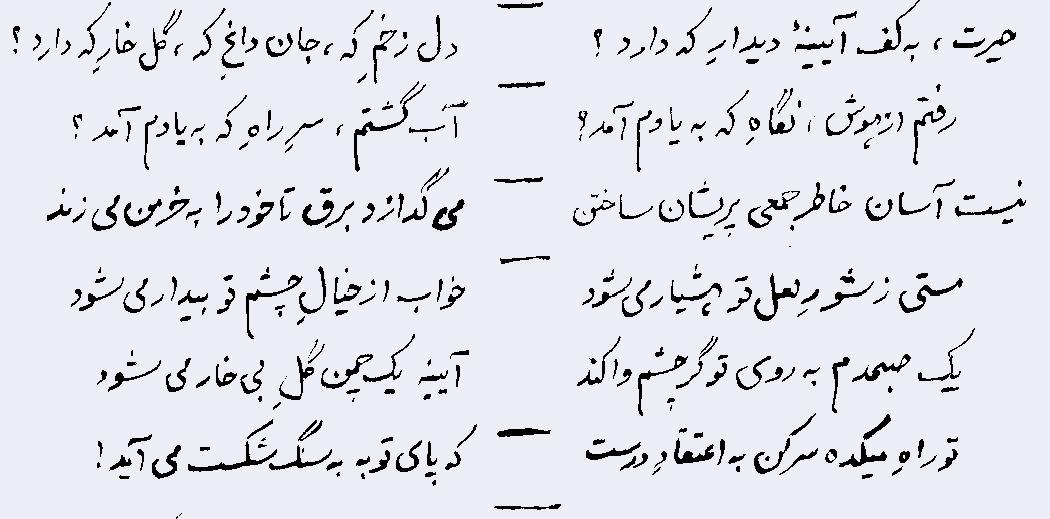 حیرت ، به کف آیینهٔ دیدارِ که دارد ؟
دل زخمِ که ، جان داغِ که ، گل خارِ که دارد ؟
رفتم از هوش ، نگاهِ که به یادم آمد ؟
آب گشتم ، سرِ راهِ که به یادم آمد ؟
نیست آسان خاطر جمعی پریشان ساختن
می گدازد برق تا خود را به خرمن می زند
مستی ز شورِ لعل تو هشیار می شود
خواب از خیالِ چشم تو بیدار می شود
یک صبحدم به روی تو گر چشم وا کند
آیینه یک چمن گلِ بی خار می شود
تو راهِ میکده سر کن به اعتقادِ درست
که پای توبه به سنگ شکست می آید !